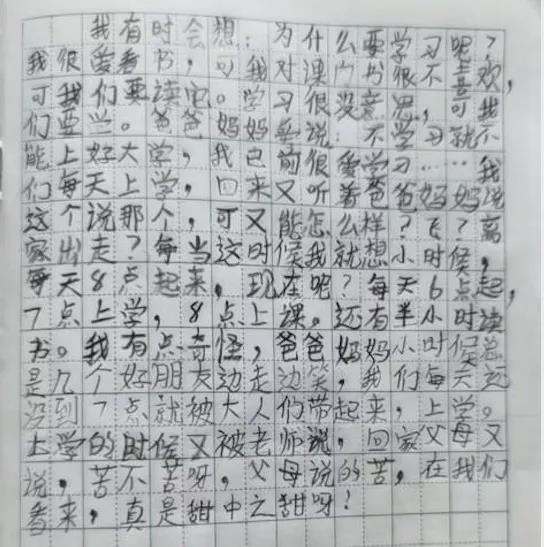 我有时会想：为什么要学习呢？
我很爱看书，可我对课门书很不喜欢，
可我们要读它。学习很没意思，可我
们要学。爸爸妈妈每说：不学习就不
能上好大学，我已前很爱学习……我
们每天上学，回来又听着爸爸妈妈说
这个说那个，可又能怎么样？飞？离
家出走？每当这时候我就想小时候，
每天8点起来，现在呢？每天6点起，
7点上学，8点上课。还有半小时读
书。我有点奇怪，爸爸妈妈小时候总
是几个好朋友边走边笑，我们每天还
没到7点就被大人们带起来，上学。
上学的时候又被老师说，回家父母又
说，苦不苦呀，父母说的苦，在我们
看来，真是甜中之甜呀！